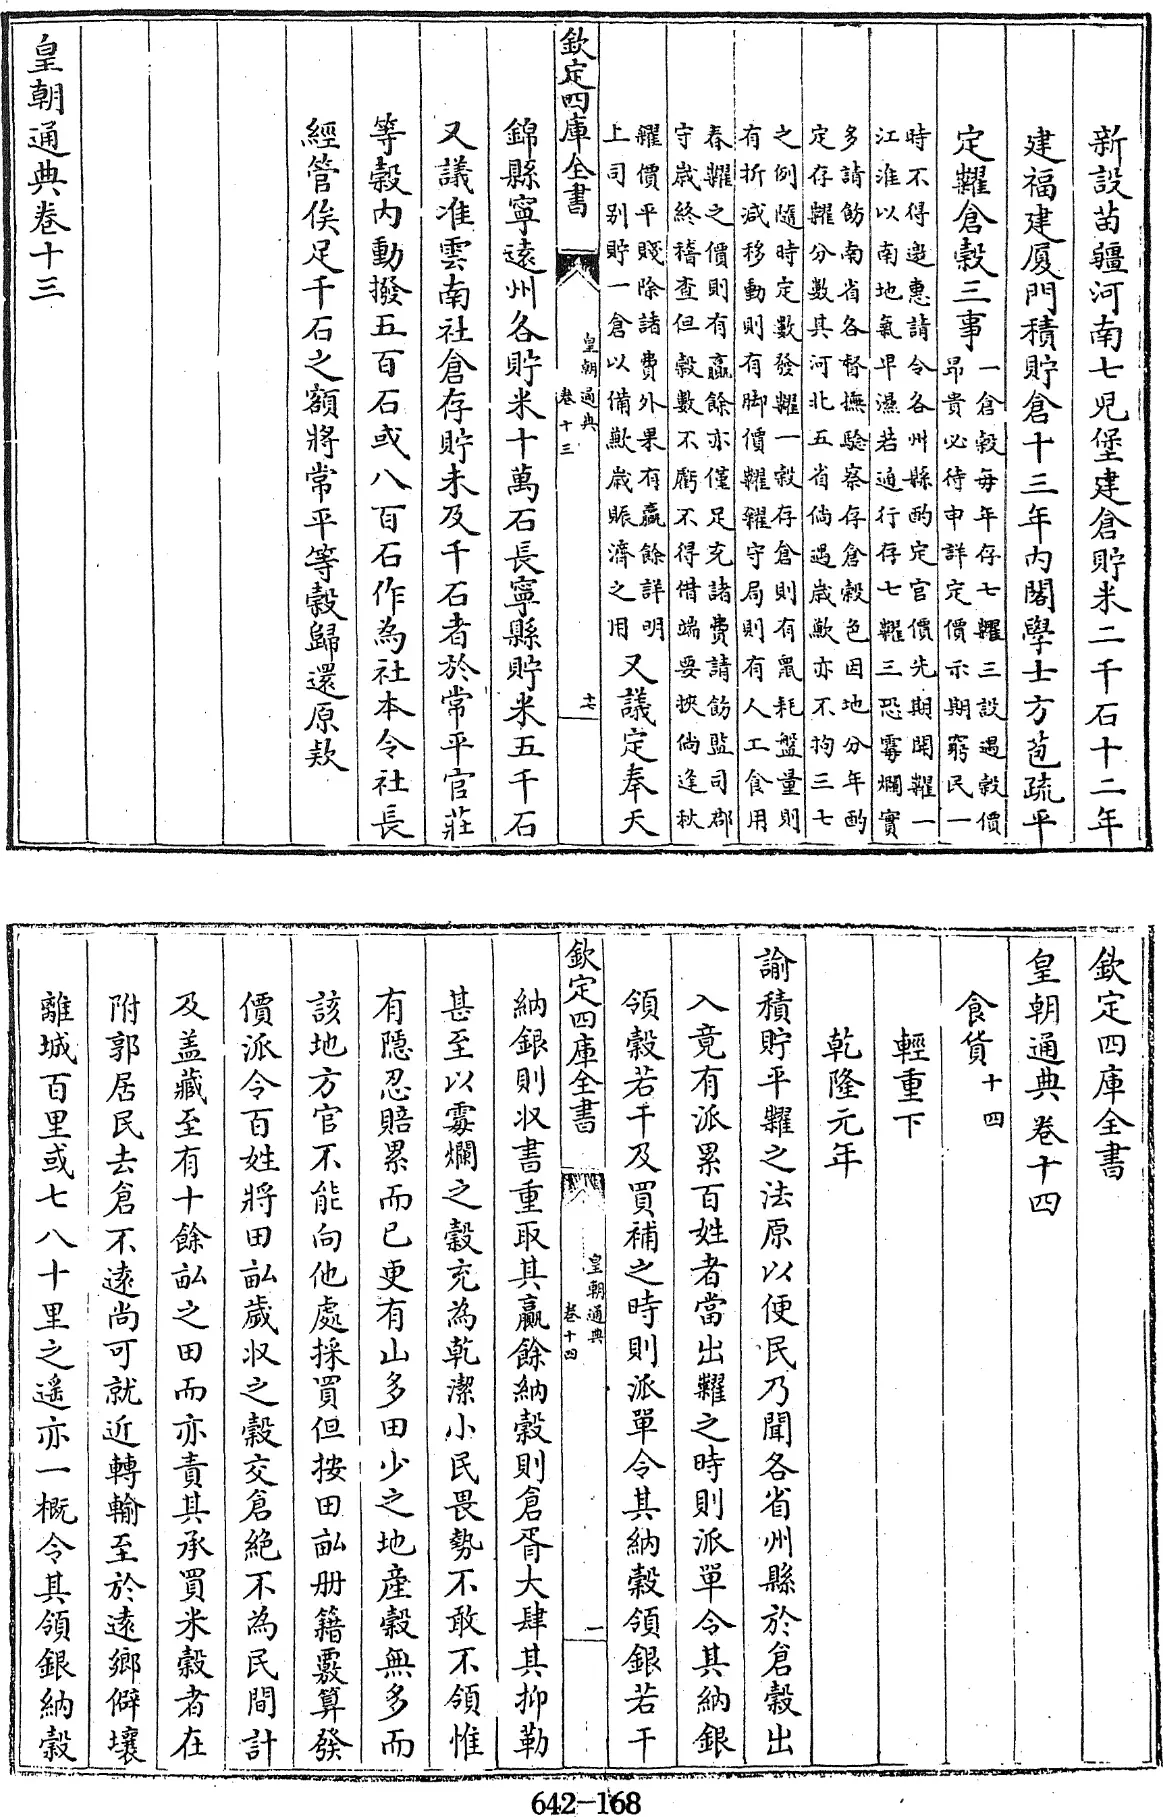 新設苗疆河南七兒堡建倉貯米二千石十二年
建福建厦門積貯倉十三年内閣學士方苞疏平
定糶倉穀三事
一倉穀每年存七糶三設遇穀價
昂貴必待申詳定價示期窮民一
時不得邀惠請令各州縣酌定官價先期開糶一
江淮以南地氣卑濕若通行存七糶三恐霉爛實
多請飭南省各督撫驗察存倉穀色因地分年酌
定存糶分數其河北五省倘遇歲歉亦不拘三七
之例隨時定數發糶一穀存倉則有鼠耗盤量則
有折減移動則有脚價糶糴守局則有人工食用
春糶之價則有贏餘亦僅足充諸費請飭監司郡
守歲終稽查但穀數不虧不得借端要挾倘逢秋
糴價平賤除諸費外果有贏餘詳明
上司别貯一倉以備歉歲賑濟之用
又議定奉天
欽定四庫全書
皇朝通典
卷十三
十七
錦縣寧遠州各貯米十萬石長寧縣貯米五千石
又議准雲南社倉存貯未及千石者於常平官莊
等穀内動撥五百石或八百石作為社本令社長
經管俟足千石之額將常平等穀歸還原欵
皇朝通典卷十三
欽定四庫全書
皇朝通典卷十四
食貨十四
輕重下
乾隆元年
諭積貯平糶之法原以便民乃聞各省州縣於倉穀出
入竟有派累百姓者當出糶之時則派單令其納銀
領穀若干及買補之時則派單令其納穀領銀若干
欽定四庫全書
皇朝通典
卷十四
一
納銀則収書重取其贏餘納穀則倉胥大肆其抑勒
甚至以霉爛之穀充為乾潔小民畏勢不敢不領惟
有隱忍賠累而已更有山多田少之地產穀無多而
該地方官不能向他處採買但按田畝册籍覈算發
價派令百姓將田畝歲収之穀交倉絶不為民間計
及盖藏至有十餘畝之田而亦責其承買米穀者在
附郭居民去倉不遠尚可就近轉輸至於遠鄉僻壤
離城百里或七八十里之遥亦一概令其領銀納穀
642-168